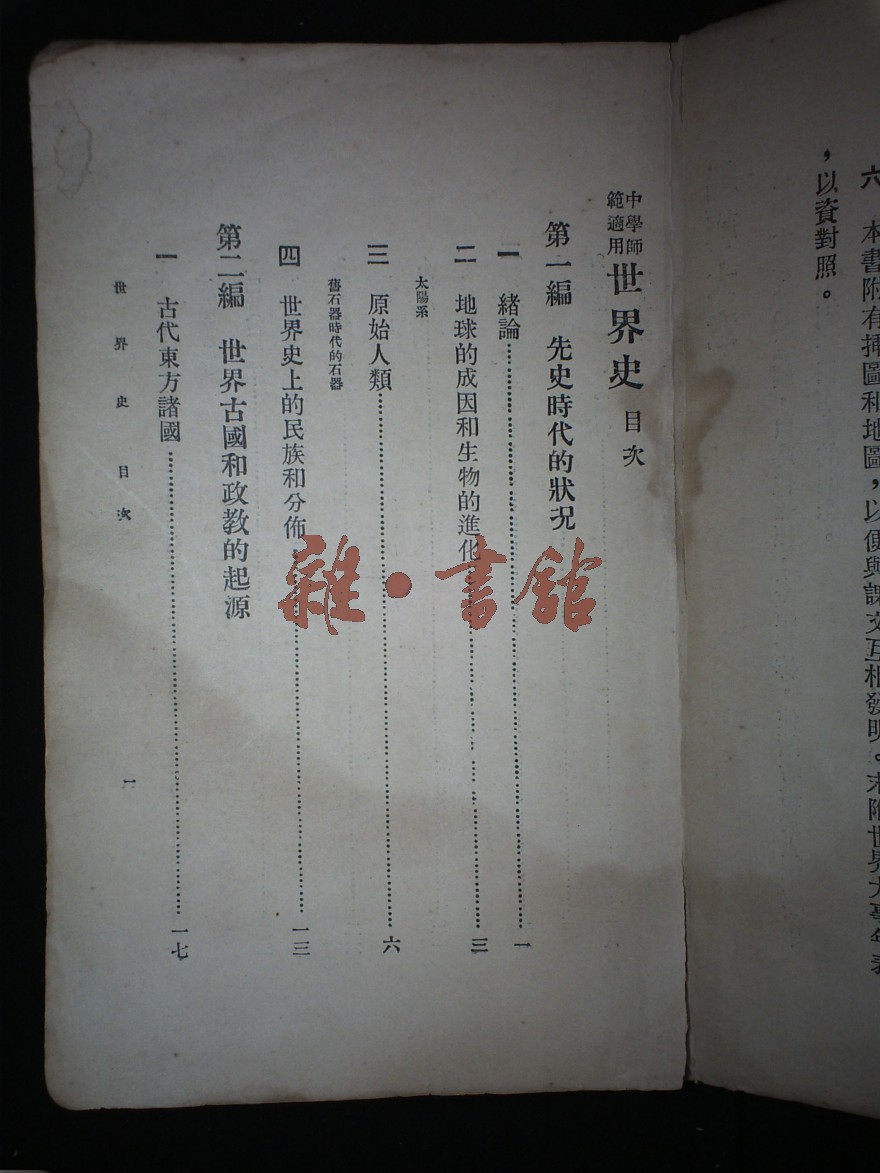 六　本書附有揷圖和地圖，以便與課文互相發明。末附世界大事年表
，以資對照。
中學師範適用 世界史 目次
第一編　先史時代的狀況
一　緒論……一
二　地球的成因和生物的進化……三
太陽系
三　原始人類……六
舊石器時代的石器
四　世界史上的民族和分佈……一三
第二編　世界古國和政教的起源
一　古代東方諸國……一七
世界史目次
一
雜·書館